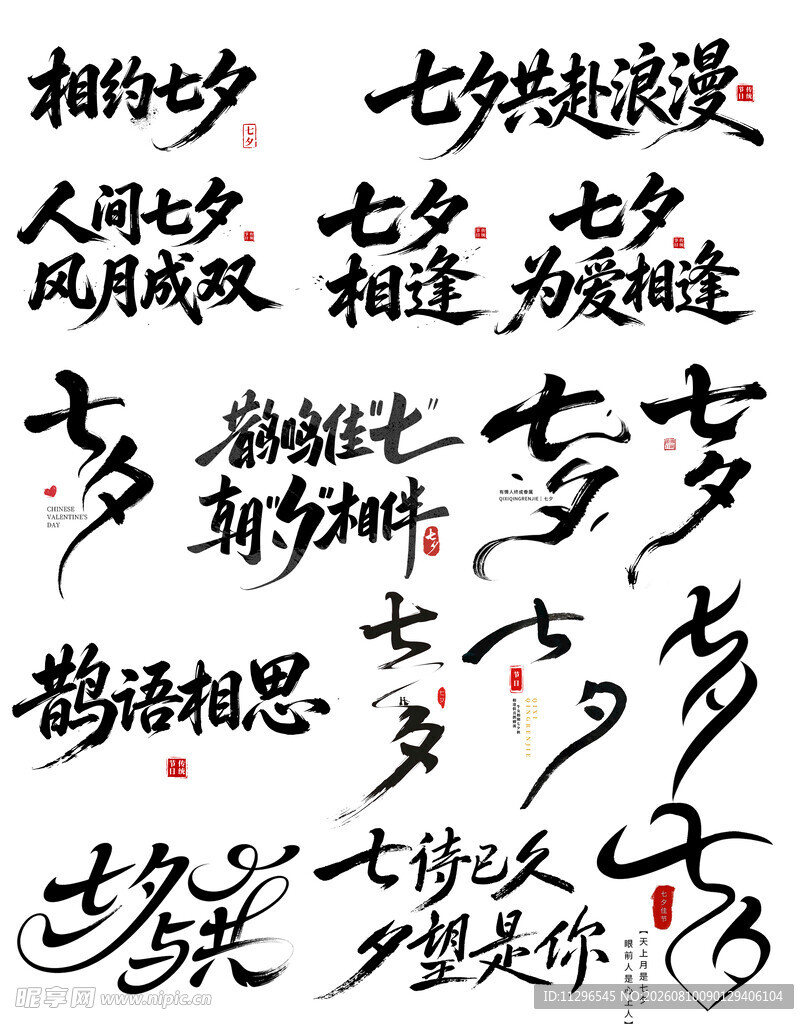 相约七夕
七夕
七夕共赴浪漫
传统
节日
人间七夕
风月成双
七夕
相逢
七夕
为爱相逢
七夕
CHINESE
VALENTINE'S
DAY
鹊鸣佳"七"
朝"夕"相伴
七夕
七夕
有情人终成眷属
QIXIQINGRENJIE | 七夕
七夕
鹊语相思
传统
节日
七夕
七夕
七夕
节日
QIXI
QINGRENJIE
七夕
七夕与共
七待已久
夕望是你
七夕
七夕佳节
【天上月是七夕
眼前人是心上人】
昵享网 www.nipic.cn
ID:11296545 NO:20260810090129406104